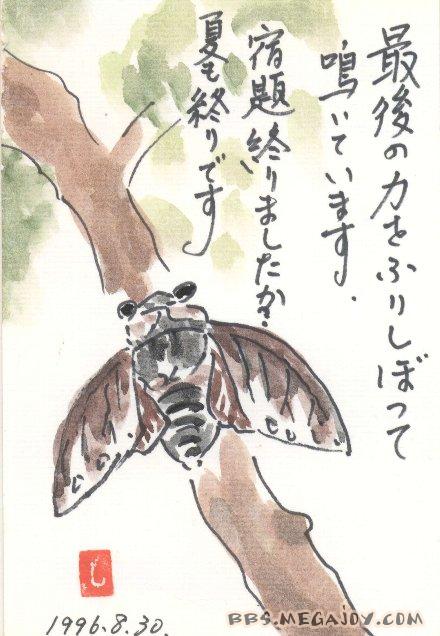 最後の力をふりしぼって
鳴いています.
宿題、終りましたか?
夏も終りです
し
1996.8.30.
BBS.MEGAJOY.COM